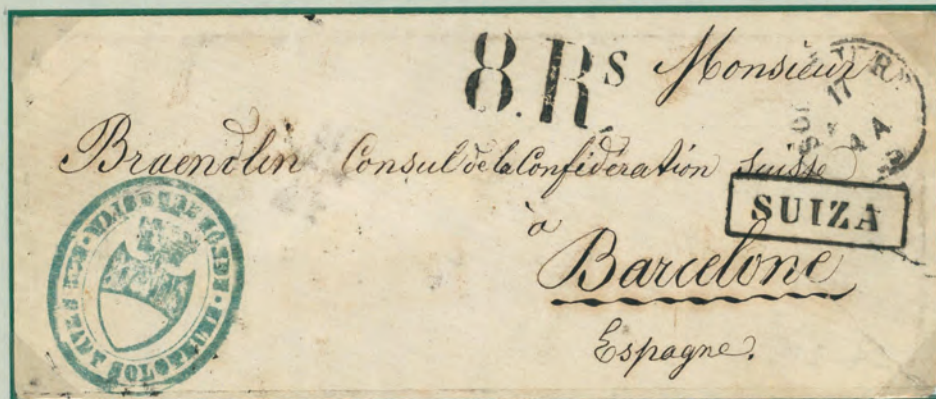 8.Rs
Monsieur
Braendlin Consul de la Confédération Suisse
à
Barcelone
Espagne.
SUIZA
17
SOLOTHURN